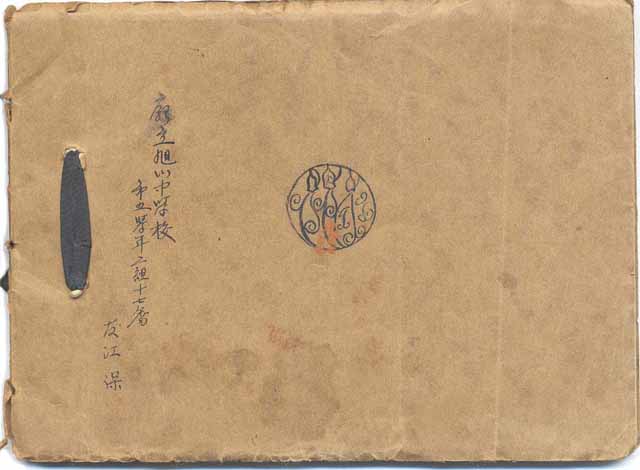 廳立旭川中学校
第五学年二組十七番
友江 保